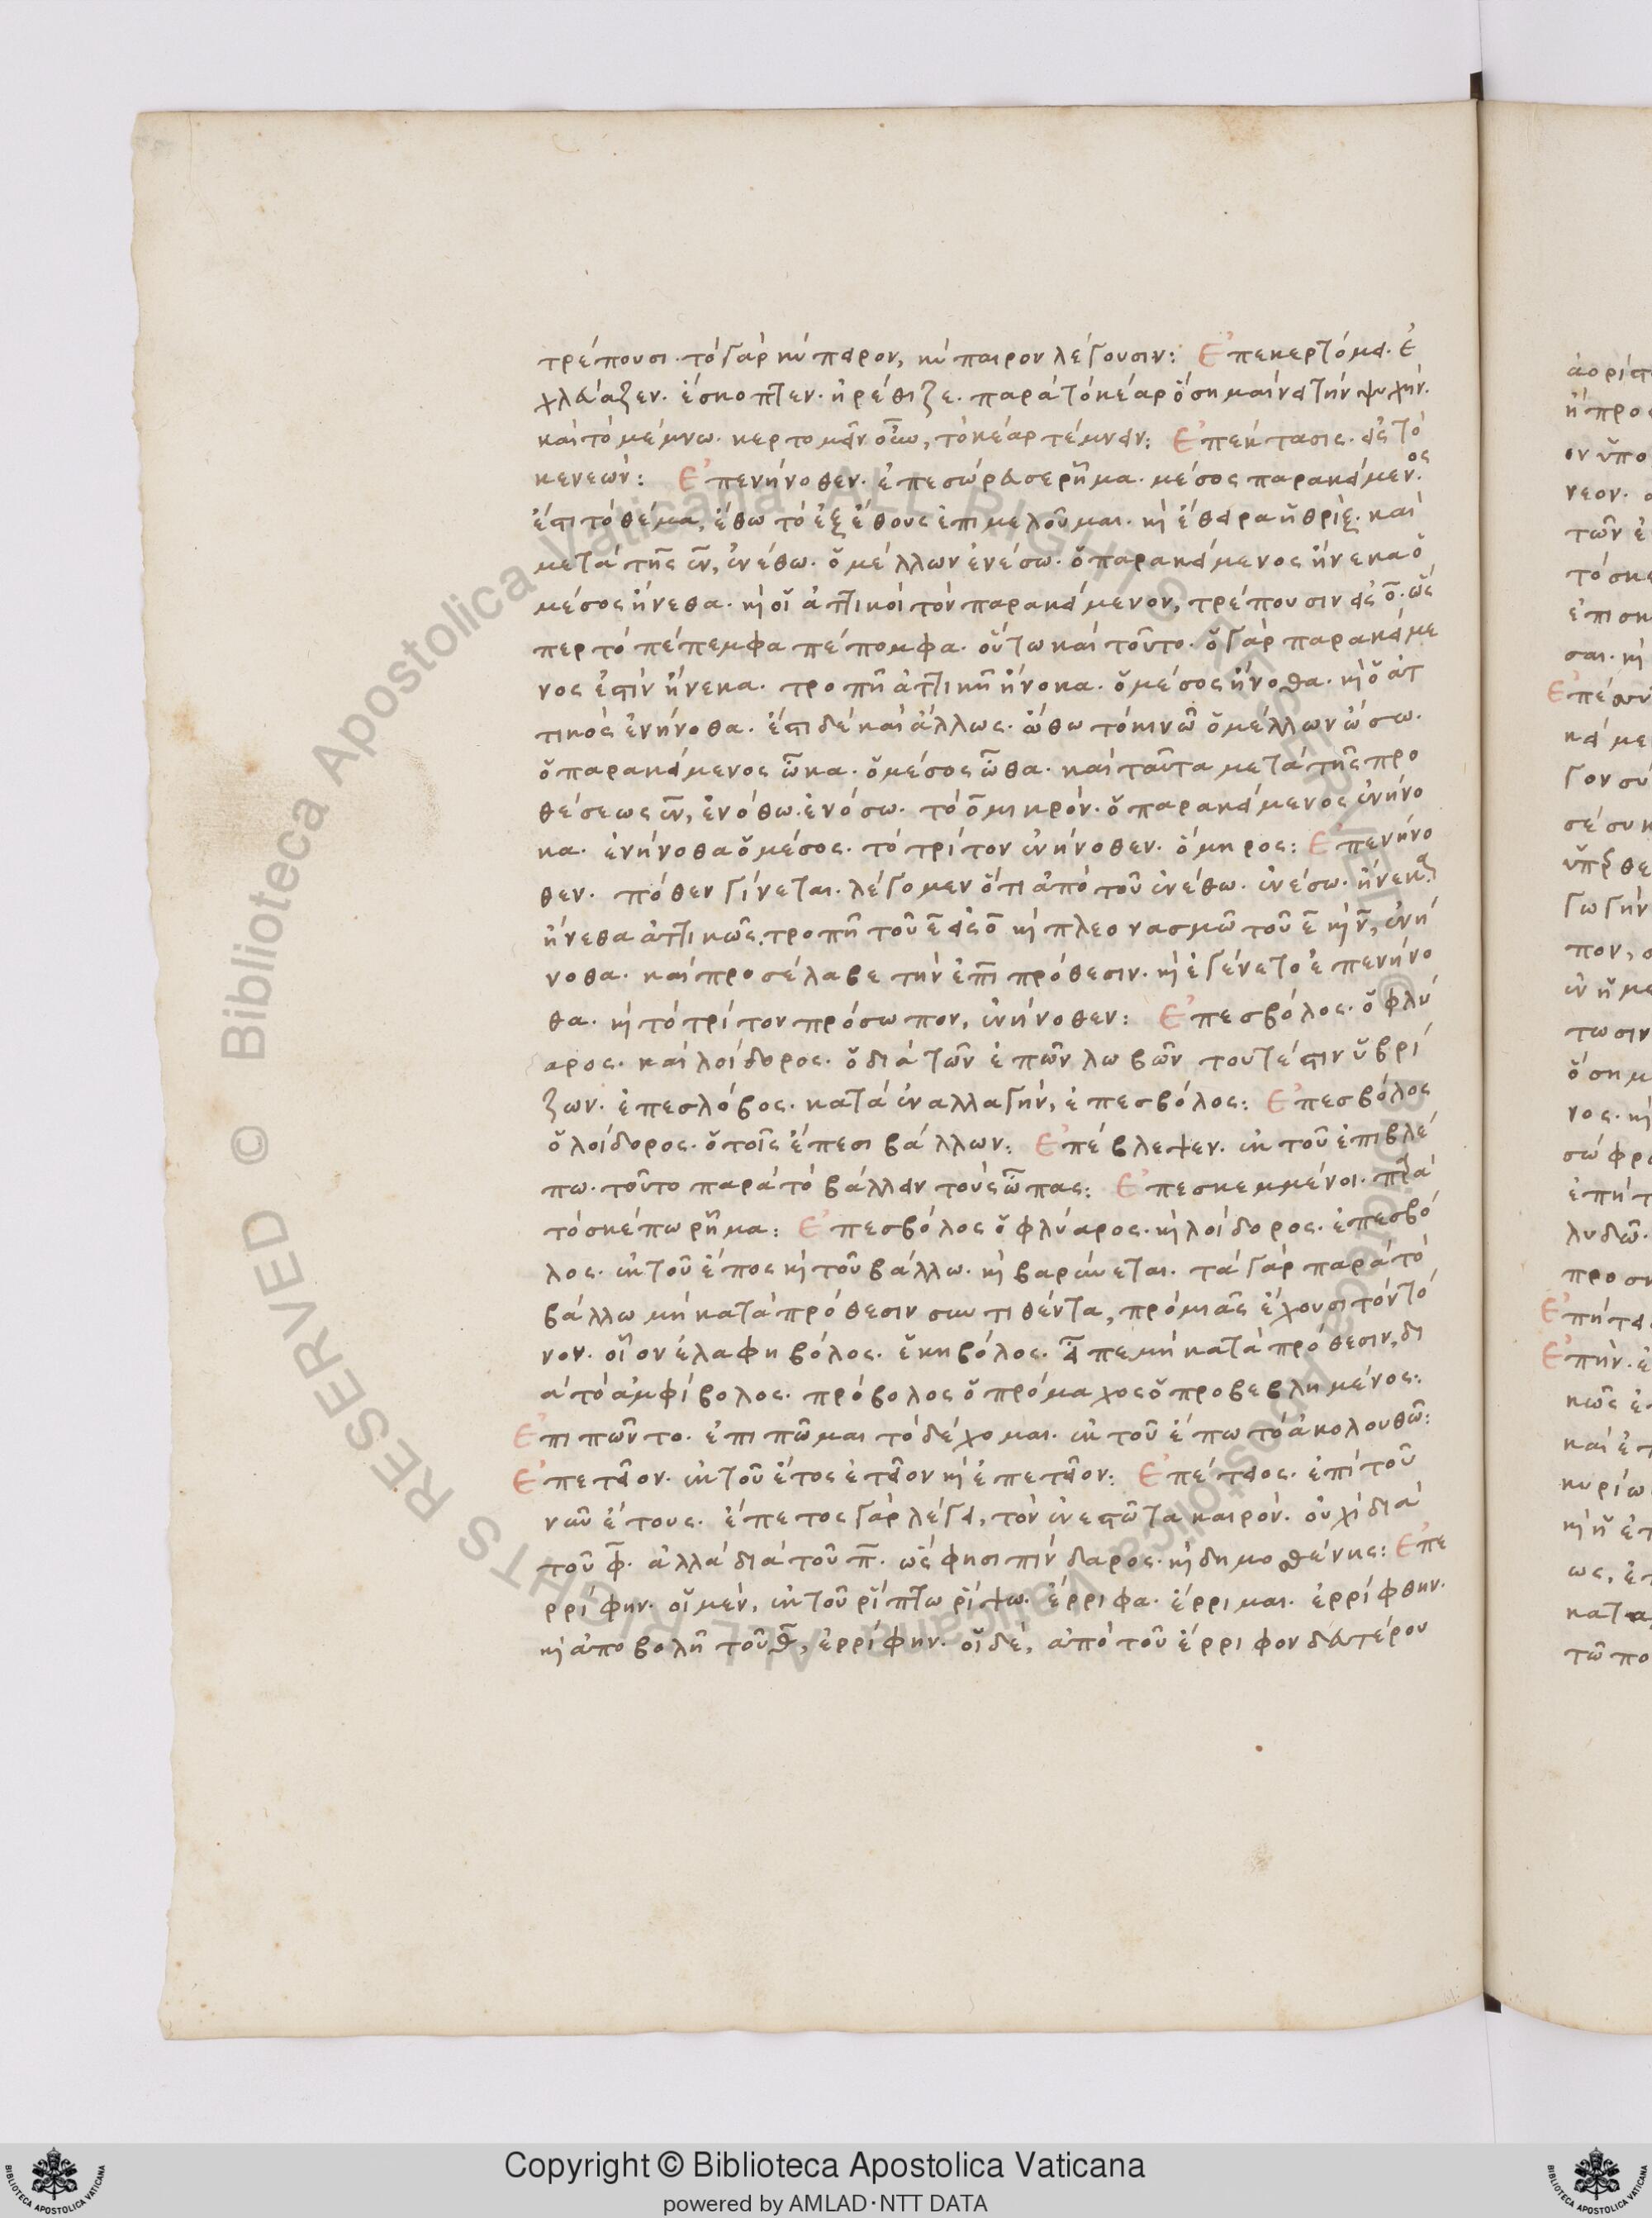 τρέπουσι· τὸ γὰρ κύπαρον, κύπαιρον λέγουσιν: Ἐπεκερτόμει· ἐ
χλεύαζεν· ἔσκοπτεν· ἠρέθιζε· παρὰ τὸ κέαρ ὃ σημαίνει τὴν ψυχήν·
καὶ τὸ μέμνω· κερτομεῖν οἷον, τὸ κέαρ τέμνειν: Ἐπέκτασις· εἰς τὸ
κενεών: Ἐπενήνοθεν· ἐπεσώρευσε ῥῆμα· μέσος παρακείμενος·
ἔστι τὸ θέμα, ἔθω τὸ ἐξ ἔθους ἐπιμελοῦμαι· κὶ ἔθειρα ἡ θρίξ· καὶ
μετὰ τῆς ἐν, ἐνέθω· ὁ μέλλων ἐνέσω· ὁ παρακείμενος ἤνεκα ὁ
μέσος ἤνεθα· κὶ οἱ ἀττικοὶ τὸν παρακείμενον, τρέπουσιν εἰς ο· ὥς
περ τὸ πέπεμφα πέπομφα· οὕτω καὶ τοῦτο· ὁ γὰρ παρακείμε
νος ἐστὶν ἤνεκα· τροπῆ ἀττικῆ ἤνοκα· ὁ μέσος ἤνοθα· κὶ ὁ ἀτ
τικὸς ἐνήνοθα· ἔστι δὲ καὶ ἄλλως· ὤθω τὸ κινῶ ὁ μέλλων ὤσω·
ὁ παρακείμενος ὦκα· ὁ μέσος ὦθα· καὶ ταῦτα μετὰ τῆς προ
θέσεως ἐν, ἐνόθω· ἐνόσω· τὸ ο μικρόν· ὁ παρακείμενος ἐνήνο
κα· ἐνήνοθα ὁ μέσος· τὸ τρίτον ἐνήνοθεν· ὅμηρος: Ἐπενήνο
θεν· πόθεν γίνεται· λέγομεν ὅτι ἀπὸ τοῦ ἐνέθω· ἐνέσω· ἤνεκα
ἤνεθα ἀττικῶς· τροπῆ τοῦ ε εἰς ο κὶ πλεονασμῶ τοῦ ε κὶ ν, ἐνή
νοθα· καὶ προσέλαβε τὴν ἐπὶ πρόθεσιν· κὶ ἐγένετο ἐπενήνο
θα· κὶ τὸ τρίτον πρόσωπον, ἐνήνοθεν: Ἐπεσβόλος· ὁ φλύ
αρος· καὶ λοίδορος· ὁ διὰ τῶν ἐπῶν λωβῶν τουτέστιν ὑβρί
ζων· ἐπεσλόβος· κατὰ ἐναλλαγὴν, ἐπεσβόλος: Ἐπεσβόλος
ὁ λοίδορος· ὁ τοῖς ἔπεσι βάλλων: Ἐπέβλεψεν· ἐκ τοῦ ἐπιβλέ
πω· τοῦτο παρὰ τὸ βάλλειν τοὺς ὦπας: Ἐπεσκεμμένοι· παρὰ
τὸ σκέπω ῥῆμα: Ἐπεσβόλος ὁ φλύαρος· κὶ λοίδορος· ἐπεσβό
λος· ἐκ τοῦ ἔπος κὶ τοῦ βάλλω· κὶ βαρύνεται· τὰ γὰρ παρὰ τὸ
βάλλω μὴ κατὰ πρόθεσιν συντιθέντα, πρὸ μιᾶς ἔχουσι τὸν τό
νον· οἷον ἐλαφηβόλος· ἑκηβόλος· εἶπε μὴ κατὰ πρόθεσιν, δι
ὰ τὸ ἀμφίβολος· πρόβολος ὁ πρόμαχος ὁ προβεβλημένος:
Ἐπιπῶντο· ἐπιπῶμαι τὸ δέχομαι· ἐκ τοῦ ἕπω τὸ ἀκολουθῶ:
Ἐπετεῖον· ἐκ τοῦ ἔτος ἐτεῖον κὶ ἐπετεῖον: Ἐπέτειος· ἐπὶ τοῦ
νῦν ἔτους· ἔπετος γὰρ λέγει, τὸν ἐνεστῶτα καιρόν· οὐχὶ διὰ
τοῦ φ· ἀλλὰ διὰ τοῦ π· ὥς φησι πίνδαρος· κὶ δημοσθένης: Ἐπε
ρρίφην· οἱ μὲν, ἐκ τοῦ ῥίπτω ῥίψω· ἔρριφα· ἔρριμαι· ἐρρίφθην·
κὶ ἀποβολῆ τοῦ θ, ἐρρίφην· οἱ δὲ, ἀπὸ τοῦ ἔρριφον δευτέρου
Copyright © Biblioteca Apostolica Vaticana
powered by AMLAD·NTT DATA